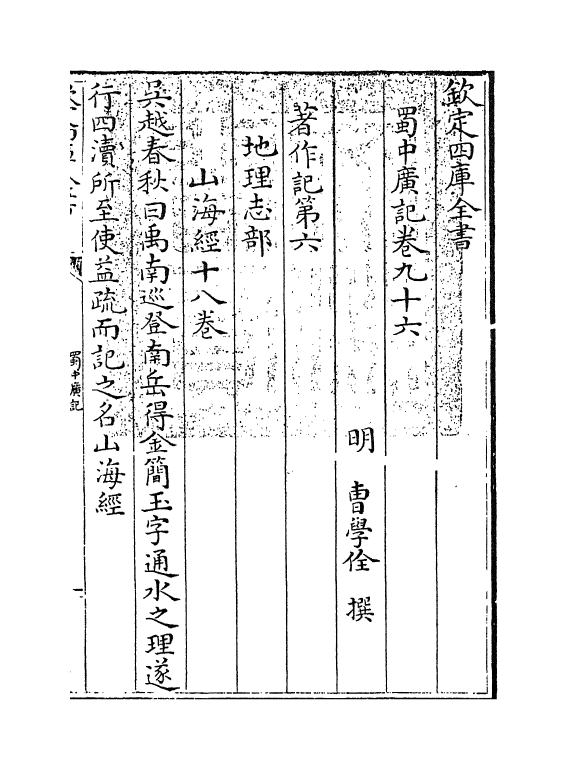 欽定四庫全書
蜀中廣記卷九十六
明　曹學佺　撰
著作記第六
地理志部
山海經十八卷
吳越春秋曰禹南巡登南岳得金簡玉字通水之理遂
行四瀆所至使益疏而記之名山海經
蜀中廣記